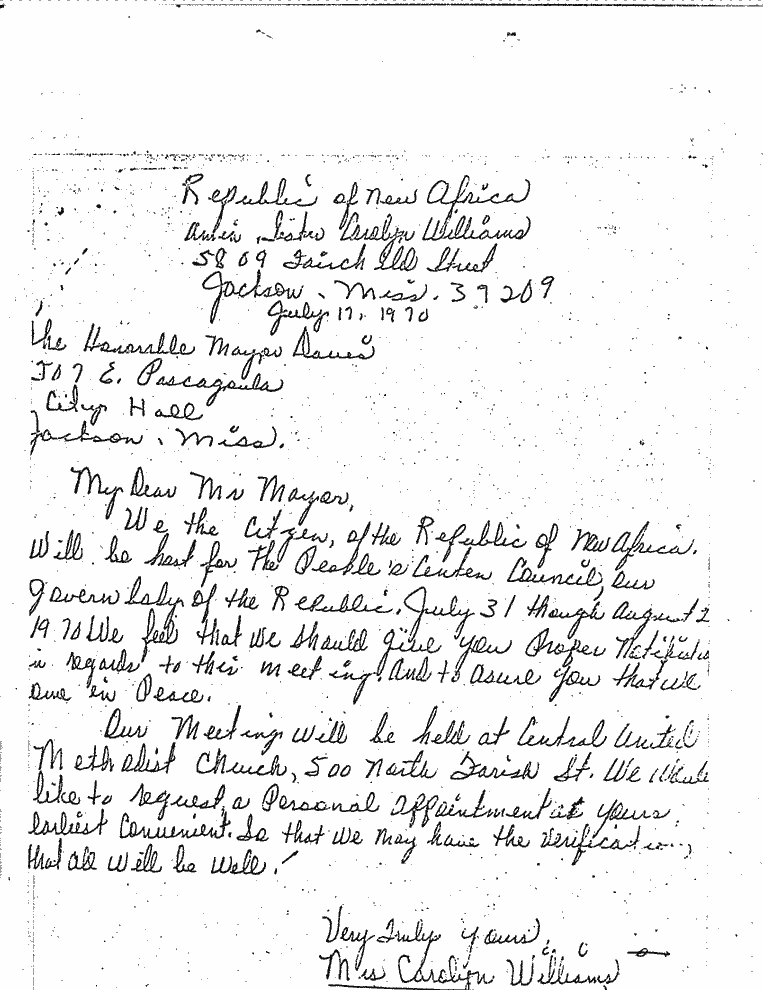 Republic of New Africa
Sister Carolyn Williams
5809 Street
Jackson, Miss. 39209
July 17, 1970
the Honorable Mayor Davis
307 E. Pascagoula
City Hall
Jackson, Miss.
My Dear Mr Mayor,
We the Citizen, of the Republic of New Africa.
Will be host for the People's Center Council, our
Govern body of the Republic. July 31 though August 2
1970 We feel that we should give you proper
in regards to this meeting. And to asure you that we
in Peace.
Our Meeting will be held at Central United
Methodist Church, 500 North Farish St. We
like to request a Personal appointment at yours
Earliest Convenient. So that we may have the
that all will be well!
Very Truly yours,
Carolyn Williams